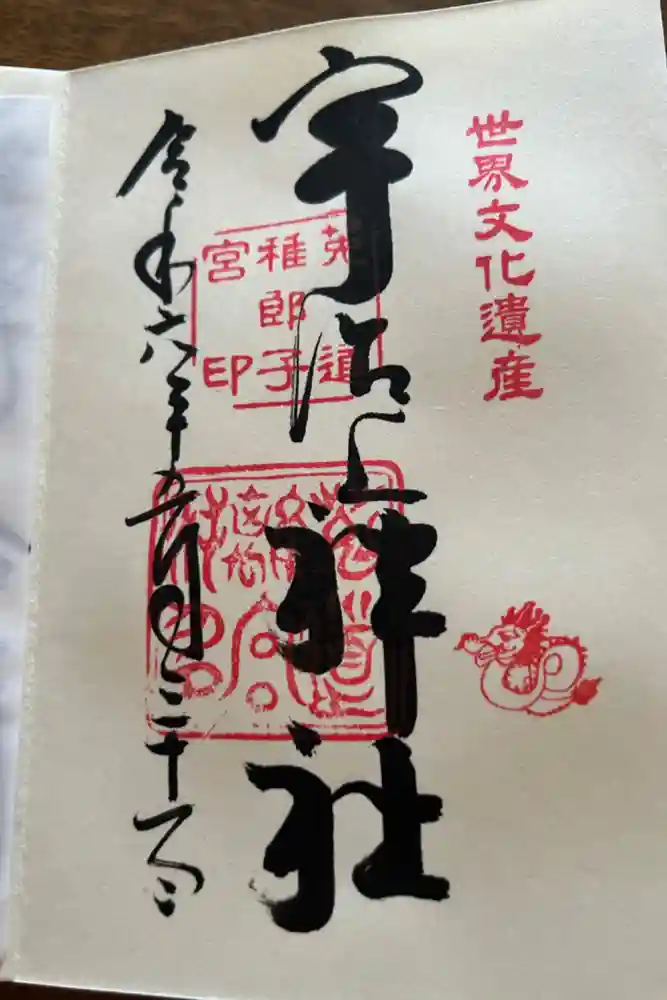 世界文化遺産
宇治上神社
菟道
稚郎子
宮印
令和六年五月三十一日